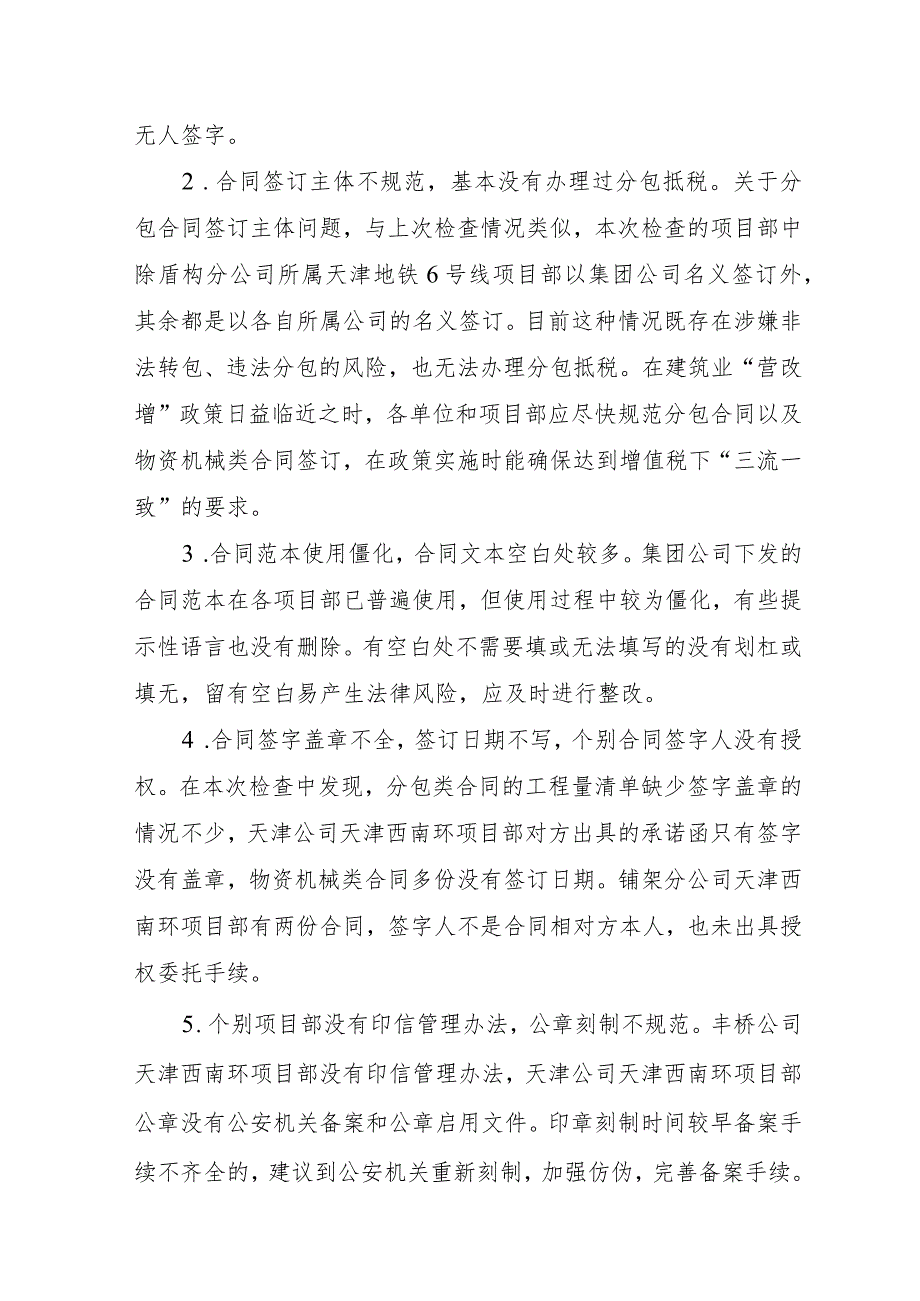 无人签字。
2．合同签订主体不规范，基本没有办理过分包抵税。关于分
包合同签订主体问题，与上次检查情况类似，本次检查的项目部中
除盾构分公司所属天津地铁 6 号线项目部以集团公司名义签订外，
其余都是以各自所属公司的名义签订。目前这种情况既存在涉嫌非
法转包、违法分包的风险，也无法办理分包抵税。在建筑业“营改
增”政策日益临近之时，各单位和项目部应尽快规范分包合同以及
物资机械类合同签订，在政策实施时能确保达到增值税下“三流一
致”的要求。
3 .合同范本使用僵化，合同文本空白处较多。集团公司下发的
合同范本在各项目部已普遍使用，但使用过程中较为僵化，有些提
示性语言也没有删除。有空白处不需要填或无法填写的没有划杠或
填无，留有空白易产生法律风险，应及时进行整改。
4 .合同签字盖章不全，签订日期不写，个别合同签字人没有授
权。在本次检查中发现，分包类合同的工程量清单缺少签字盖章的
情况不少，天津公司天津西南环项目部对方出具的承诺函只有签字
没有盖章，物资机械类合同多份没有签订日期。铺架分公司天津西
南环项目部有两份合同，签字人不是合同相对方本人，也未出具授
权委托手续。
5. 个别项目部没有印信管理办法，公章刻制不规范。丰桥公司
天津西南环项目部没有印信管理办法，天津公司天津西南环项目部
公章没有公安机关备案和公章启用文件。印章刻制时间较早备案手
续不齐全的，建议到公安机关重新刻制，加强仿伪，完善备案手续。